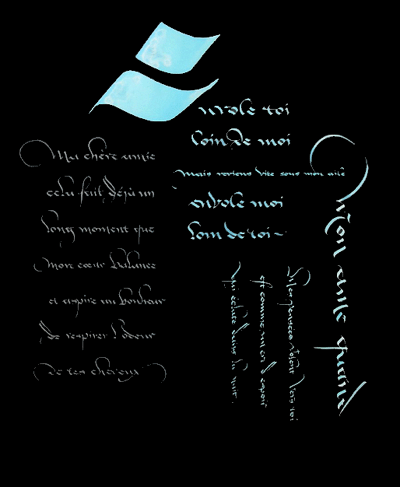 Ma chère amie
cela fait déjà un
long moment que
mon cœur balance
et aspire au bonheur
de respirer l'odeur
de tes cheveux
nvole toi
loin de moi
Mais reviens vite sous mon aile
envole moi
loin de toi
Mon quand
pensées volent vers toi
est comme un cri d'espoir
qui éclate dans la nuit